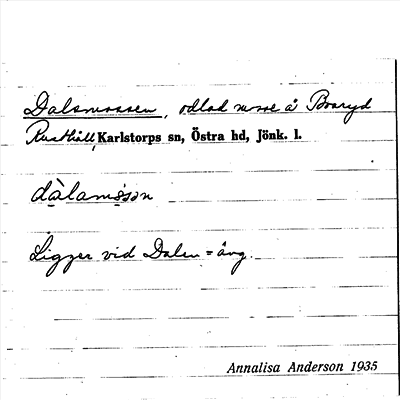 Dalamossen, odlad mosse å Boaryd
Rusthåll, Karlstorps sn, Östra hd, Jönk. l.
dàlamòsən
Ligger vid Dalen = äng.
Annalisa Anderson 1935